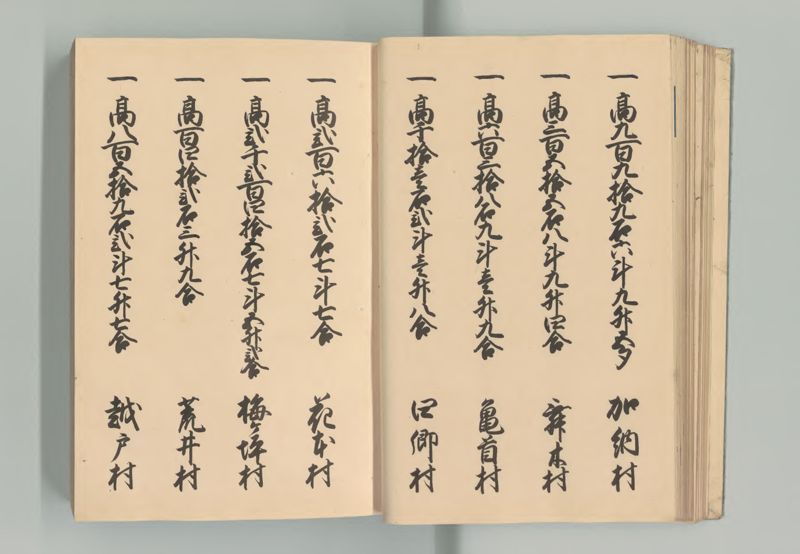 一 高九百九拾九石六斗九升五夕 加納村
一 高三百五拾五石八斗九升四合 舞木村
一 高六百三拾八石九斗壱升九合 亀首村
一 高千拾壱石弐斗壱升八合 四郷村
一 高弐百六拾弐石七斗七合 花本村
一 高弐千弐百四拾五石七斗五升弐合 梅ヶ坪村
一 高百四拾弐石三升九合 荒井村
一 高八百五拾九石弐斗七升七合 越戸村